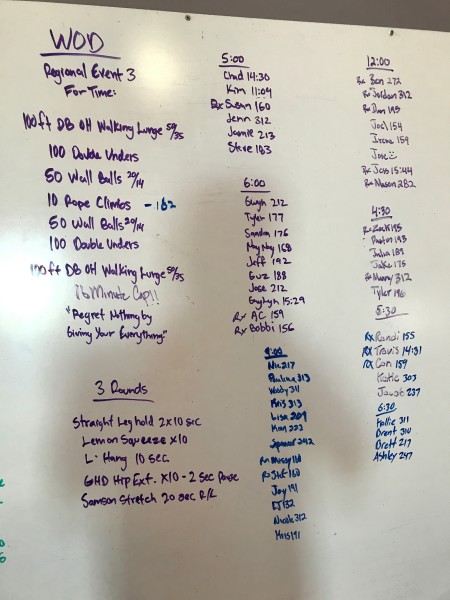 WOD
Regional Event 3
For Time:
100ft DB OH Walking Lunge 50/35
100 Double Unders
50 Wall Balls 20/14
10 Rope Climbs - 162
50 Wall Balls 20/14
100 Double Unders
100ft DB OH Walking Lunge 50/35
16 Minute Cap!!
"Regret Nothing by
Giving Your Everything"
3 Rounds
Straight Leg hold 2x10 sec
Lemon Squeeze x10
L-Hang 10 sec
GHD Hip Ext. x10 - 2 Sec Pause
Samson Stretch 20 sec R/L
5:00
Chad 14:30
Kim 11:04
Rx Susan 160
Jenn 312
Jamie 213
Steve 183
6:00
212
Tyler 177
Sandra 176
168
Jeff 192
Guz 188
Jose 212
15:29
Rx AC 159
Rx Bobbi 156
217
Pauline 313
Woody 311
Kris 313
Lisa 209
223
Spencer 242
Rx Missy 160
Rx 160
Jay 191
132
Nicole 312
Kris 191
12:00
Rx Ben 272
Rx Jordan 312
Rx Dan 195
Joel 154
Irene 159
Jose
Rx Joss 15:44
Rx Mason 282
4:30
Rx Zack 195
193
Julia 189
Jake 175
Rx 312
Tyler 196
5:30
Rx Randi 155
Rx Travis 14:31
Rx Con 159
Katie 303
Jacob 237
6:30
Kallie 311
Brent 310
Brett 217
Ashley 247